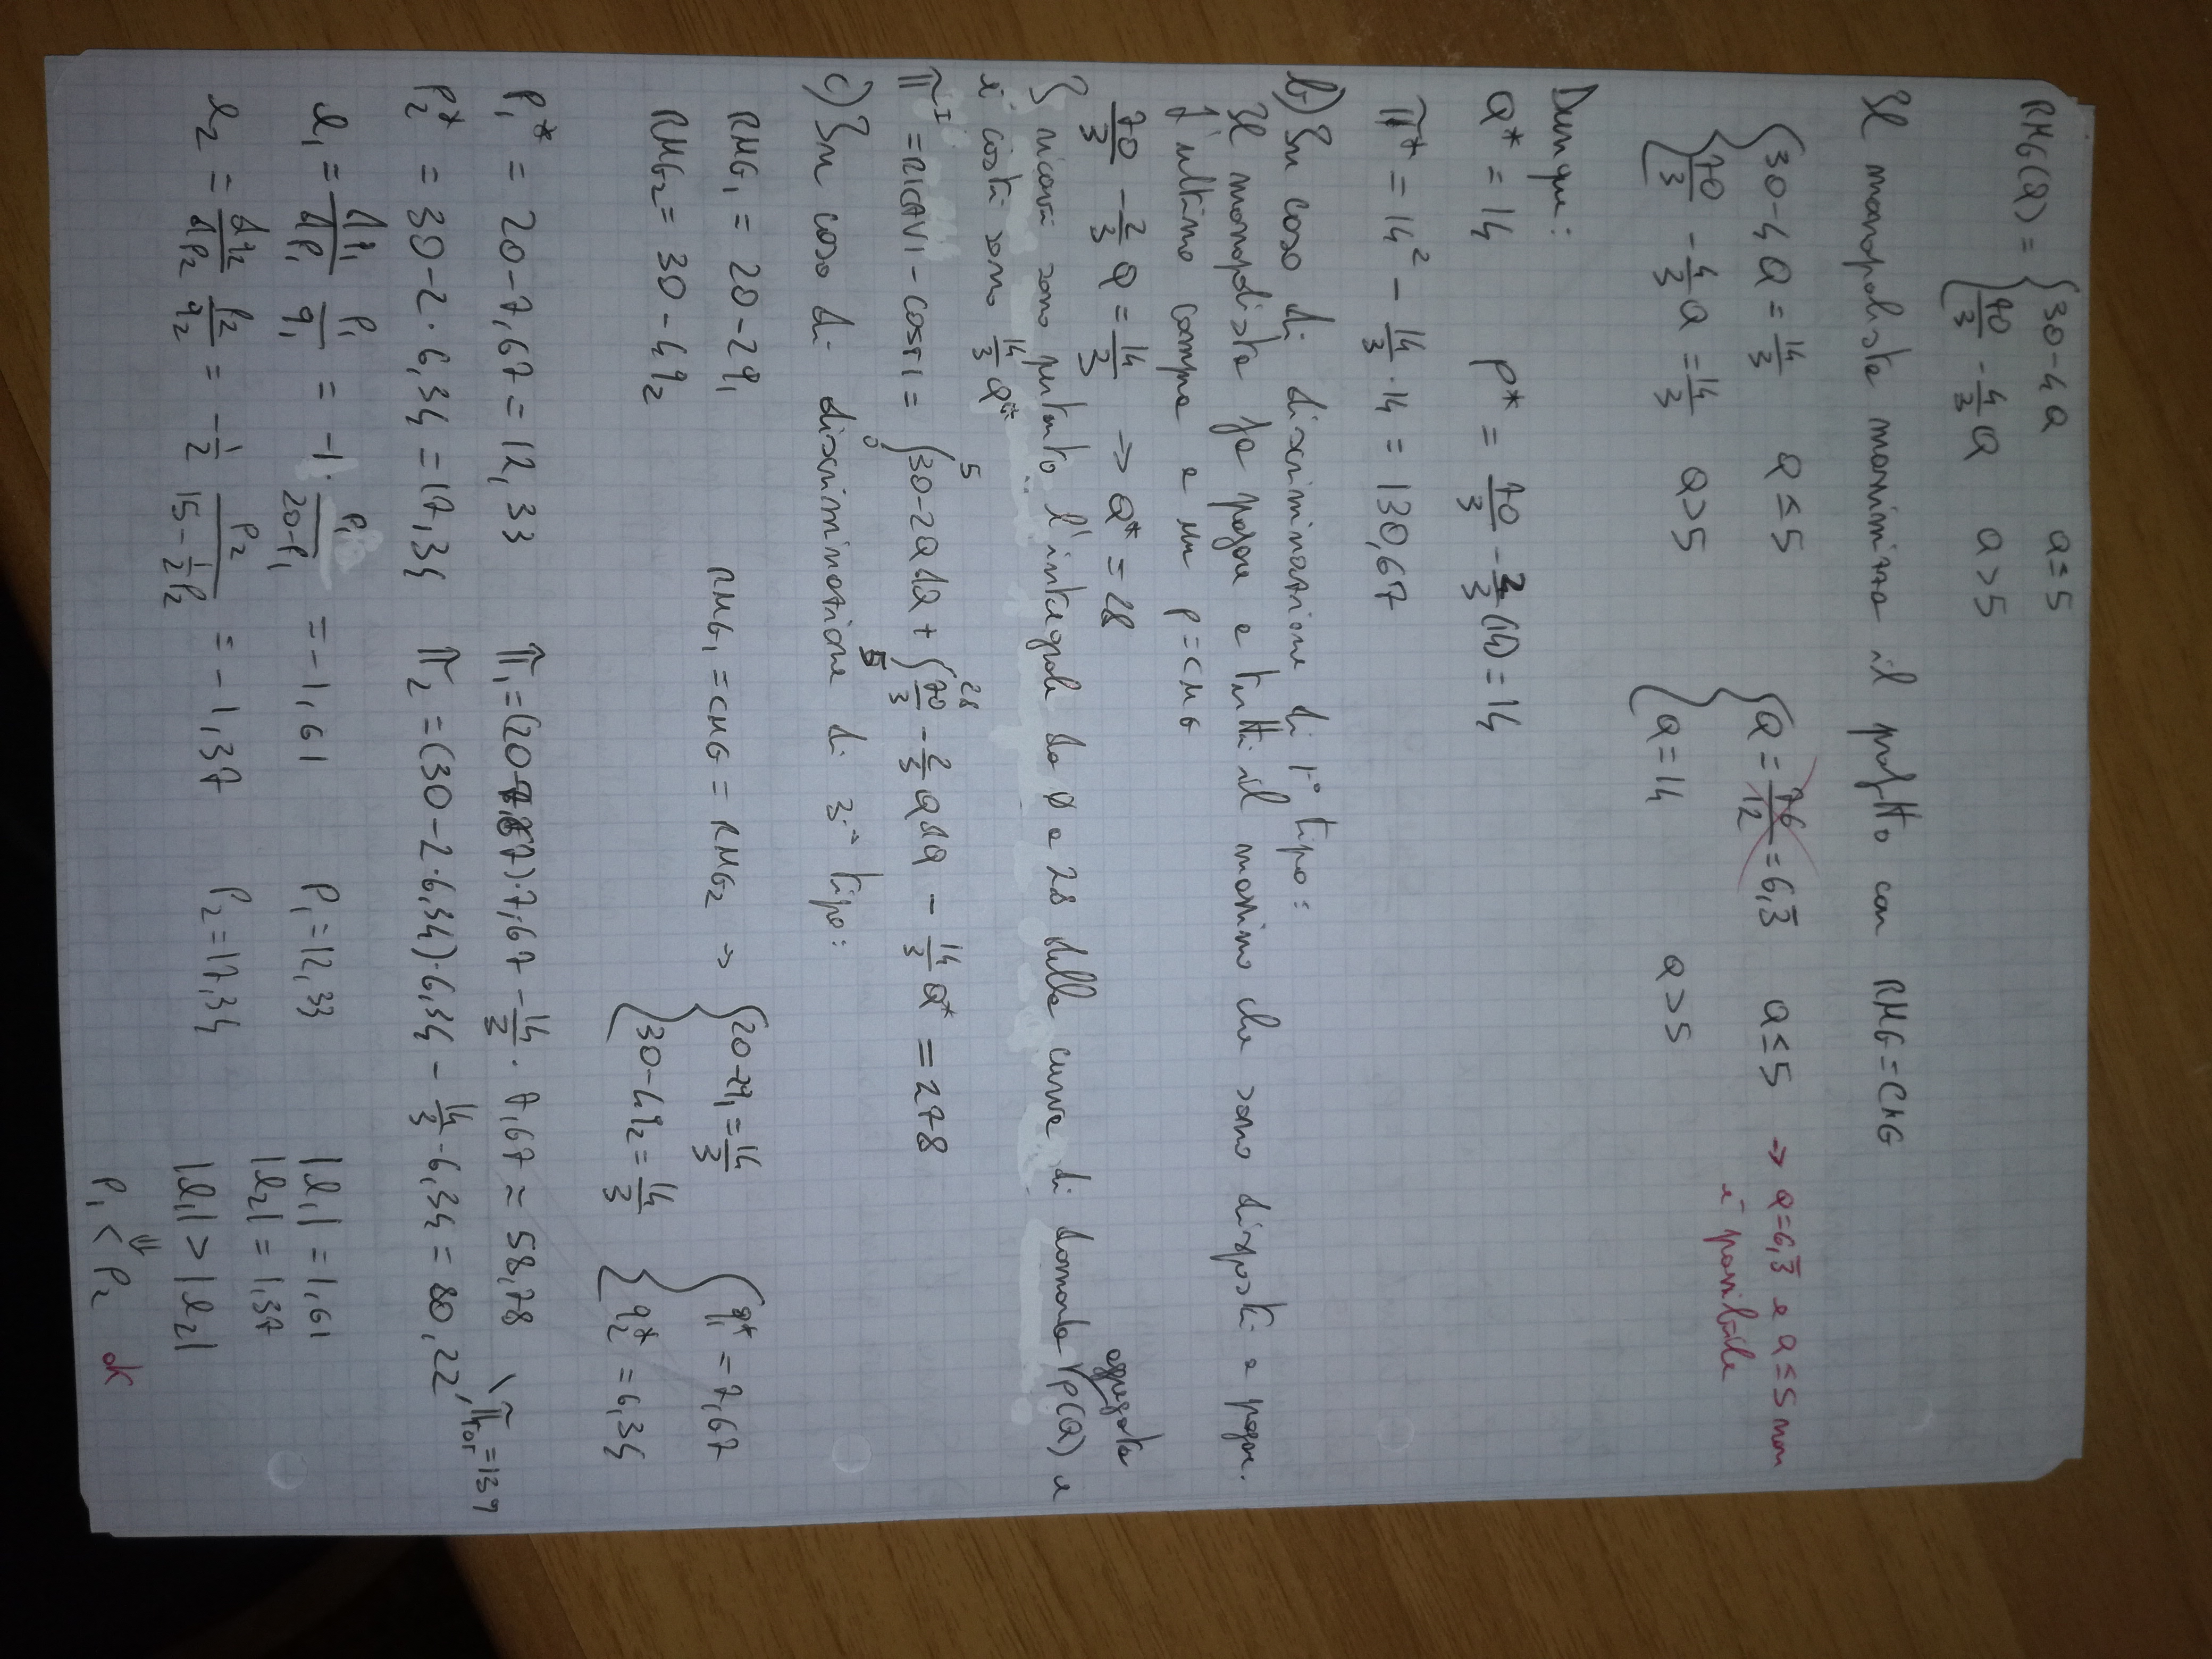 RMG(Q) = { 30-4Q Q≤5
70/3 - 4/3 Q Q>5
Il monopolista massimizza il profitto con RMG = CMG
{ 30-4Q = 14/3 Q≤5 { Q = 76/12 = 6,3̅ Q≤5 → Q=6,3̅ e Q≤5 non
è possibile
70/3 - 4/3 Q = 14/3 Q>5 Q = 14 Q>5
Dunque:
Q* = 14 P* = 70/3 - 2/3 (14) = 14
π* = 14² - 14/3 · 14 = 130,67
b) In caso di discriminazione di 1° tipo:
Il monopolista fa pagare a tutti il massimo che sono disposti a pagare.
L'ultimo compra a un p=CMG
70/3 - 2/3 Q = 14/3 ⇒ Q* = 28
I ricavi sono pertanto l'integrale da 0 a 28 della curva di domanda aggregata p(Q) e
i costi sono 14/3 Q*
π^I = RICAVI - COSTI = ∫₀⁵ 30-2Q dQ + ∫₅²⁸ 70/3 - 2/3 Q dQ - 14/3 Q* = 278
c) In caso di discriminazione di 3° tipo:
RMG₁ = 20-2q₁ RMG₁ = CMG = RMG₂ → { 20-2q₁ = 14/3 { q₁* = 7,67
RMG₂ = 30-4q₂ 30-4q₂ = 14/3 q₂* = 6,34
P₁* = 20-7,67 = 12,33 π₁ = (20-7,67)·7,67 - 14/3 · 7,67 = 58,78
π_TOT = 139
P₂* = 30-2·6,34 = 17,34 π₂ = (30-2·6,34)·6,34 - 14/3 · 6,34 = 80,22
e₁ = dq₁/dP₁ P₁/q₁ = -1 · P₁/(20-P₁) = -1,61 P₁ = 12,33 |e₁| = 1,61
|e₂| = 1,37
e₂ = dq₂/dP₂ P₂/q₂ = -1/2 P₂/(15-1/2 P₂) = -1,37 P₂ = 17,34
|e₁| > |e₂|
⇓
P₁ < P₂ ok